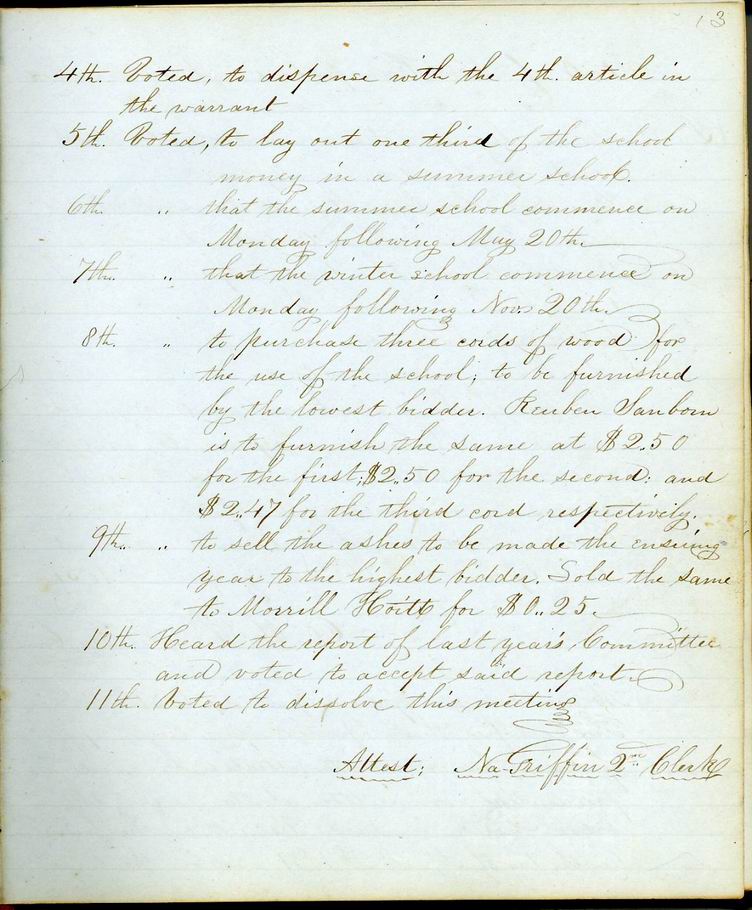 13
4th. Voted, to dispense with the 4th. article in
the warrant
5th. Voted, to lay out one third of the school
money in a summer school.
6th. " that the summer school commence on
Monday following May 20th.
7th. " that the winter school commence on
Monday following Nov. 20th.
8th. " to purchase three cords of wood for
the use of the school; to be furnished
by the lowest bidder. Reuben Sanborn
is to furnish the same at $2..50
for the first; $2..50 for the second; and
$2..47 for the third cord respectively.
9th. " to sell the ashes to be made the ensuing
year to the highest bidder. Sold the same
to Morrill Hoitt for $0..25.
10th. Heard the report of last year's Committee
and voted to accept said report.
11th. Voted to dissolve this meeting
Attest; Na Griffin 2nd Clerk